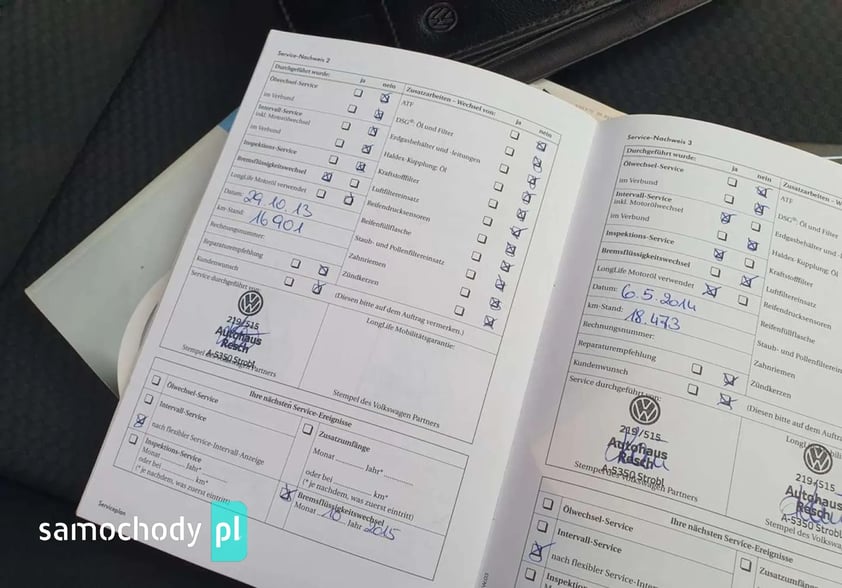 Service-Nachweis 2
Durchgeführt wurde:
ja
nein
Ölwechsel-Service
im Verbund
Intervall-Service
inkl. Motorölwechsel
im Verbund
Inspektions-Service
Bremsflüssigkeitswechsel
LongLife Motoröl verwendet
Datum: 29.10.13
km-Stand: 16901
Rechnungsnummer:
Reparaturempfehlung
Kundenwunsch
Service durchgeführt von:
219/515
Autohaus
Resch
A-5350 Strobl
Stempel des Volkswagen Partners
Zusatzarbeiten – Wechsel von:
ja
nein
ATF
DSG®-Öl und Filter
Erdgasbehälter und -leitungen
Haldex-Kupplung: Öl
Kraftstofffilter
Luftfiltereinsatz
Reifendrucksensoren
Reifenfüllflasche
Staub- und Pollenfiltereinsatz
Zahnriemen
Zündkerzen
(Diesen bitte auf dem Auftrag vermerken.)
LongLife Mobilitätsgarantie:
Stempel des Volkswagen Partners
Ihre nächsten Service-Ereignisse
Ölwechsel-Service
Intervall-Service
nach flexibler Service-Intervall-Anzeige
Inspektions-Service
Monat Jahr*
oder bei km*
(* je nachdem, was zuerst eintritt)
Zusatzumfänge
Monat Jahr*
oder bei km*
(* je nachdem, was zuerst eintritt)
Bremsflüssigkeitswechsel
Monat 10 Jahr 2015
Serviceplan
Service-Nachweis 3
Durchgeführt wurde:
ja
nein
Ölwechsel-Service
im Verbund
Intervall-Service
inkl. Motorölwechsel
im Verbund
Inspektions-Service
Bremsflüssigkeitswechsel
LongLife Motoröl verwendet
Datum: 6.5.2014
km-Stand: 18.473
Rechnungsnummer:
Reparaturempfehlung
Kundenwunsch
Service durchgeführt von:
219/515
Autohaus
Resch
A-5350 Strobl
Stempel des Volkswagen Partners
Zusatzarbeiten
ATF
DSG®-Öl und Filter
Erdgasbehälter und
Haldex-Kupplung:
Kraftstofffilter
Luftfiltereinsatz
Reifendrucksensoren
Reifenfüllflasche
Staub- und Pollenfiltereins
Zahnriemen
Zündkerzen
(Diesen bitte auf dem Auftra
219/515
Autohaus
Resch
A-5350 Strobl
Stempel des Vol
Ihre nächsten Service-Ereignisse
Ölwechsel-Service
Intervall-Service
nach flexibler Service-Intervall-Anzeige
Inspektions-Service
Zusatzumfäng
samochody pl